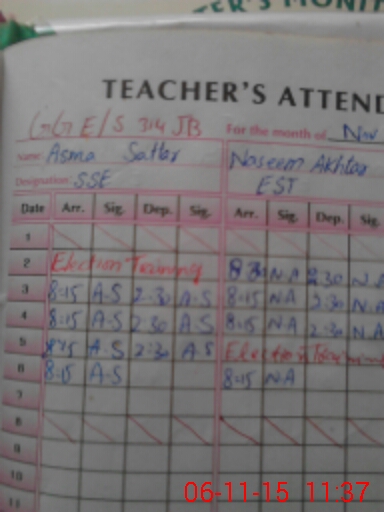 TEACHER'S ATTEND
E/S 314 JB For the month of Nov
Name Asma Sattar Naseem Akhtar
Designation SSE EST
Date Arr. Sig. Dep. Sig. Arr. Sig. Dep. Sig.
1
2 Election Training 8:30 N.A 2:30 N.A
3 8:15 A-S 2-30 A-S 8:15 NA 2:30 N.A
4 8:15 A-S 2 30 A-S 8:15 N-A 2:30 N.A
5 8:15 A-S 2:30 A-S Election Training
6 8:15 A-S 8:15 NA
7
8
9
10
11
06-11-15 11:37